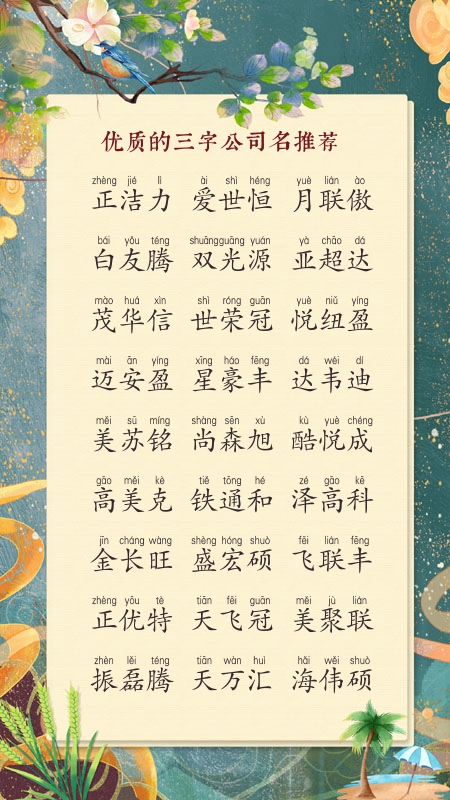 优质的三字公司名推荐
zhèng jié lì ài shì héng yuè lián ào
正洁力 爱世恒 月联傲
bái yǒu téng shuāng guāng yuán yà chāo dá
白友腾 双光源 亚超达
mào huá xìn shì róng guān yuè niǔ yíng
茂华信 世荣冠 悦纽盈
mài ān yíng xīng háo fēng dá wéi dí
迈安盈 星豪丰 达韦迪
měi sū míng shàng sēn xù kù yuè chéng
美苏铭 尚森旭 酷悦成
gāo měi kè tiě tōng hé zé gāo kē
高美克 铁通和 泽高科
jīn cháng wàng shèng hóng shuò fēi lián fēng
金长旺 盛宏硕 飞联丰
zhèng yōu tè tiān fēi guān měi jù lián
正优特 天飞冠 美聚联
zhèn lěi téng tiān wàn huì hǎi wěi shuò
振磊腾 天万汇 海伟硕